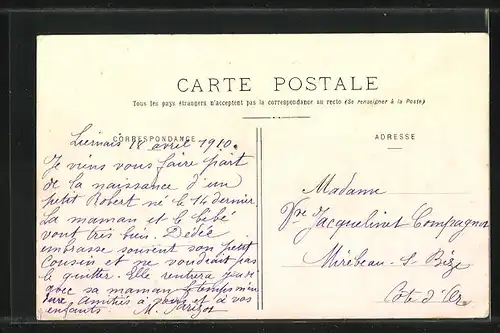 CARTE POSTALE
Tous les pays étrangers n'acceptent pas la correspondance au recto (Se renseigner à la Poste)
CORRESPONDANCE
ADRESSE
Liernais 18 avril 1910.
Je viens vous faire part
de la naissance d'un
petit Robert né le 14 dernier
La maman et le bébé
vont très bien. Dédée
embrasse souvent son petit
cousin et ne voudrait pas
le quitter. Elle rentrera
avec sa maman le temps m'en
dure, amitiés à vous et à vos
enfants. M.
Madame
Vve Jacquelinet Compagnon
Mirebeau-s-Bèze
Côte d'Or